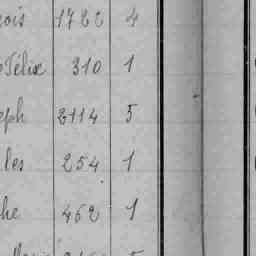 ois 1722 4
Félix 310 1
eph 2114 5
les 254 1
he 452 1